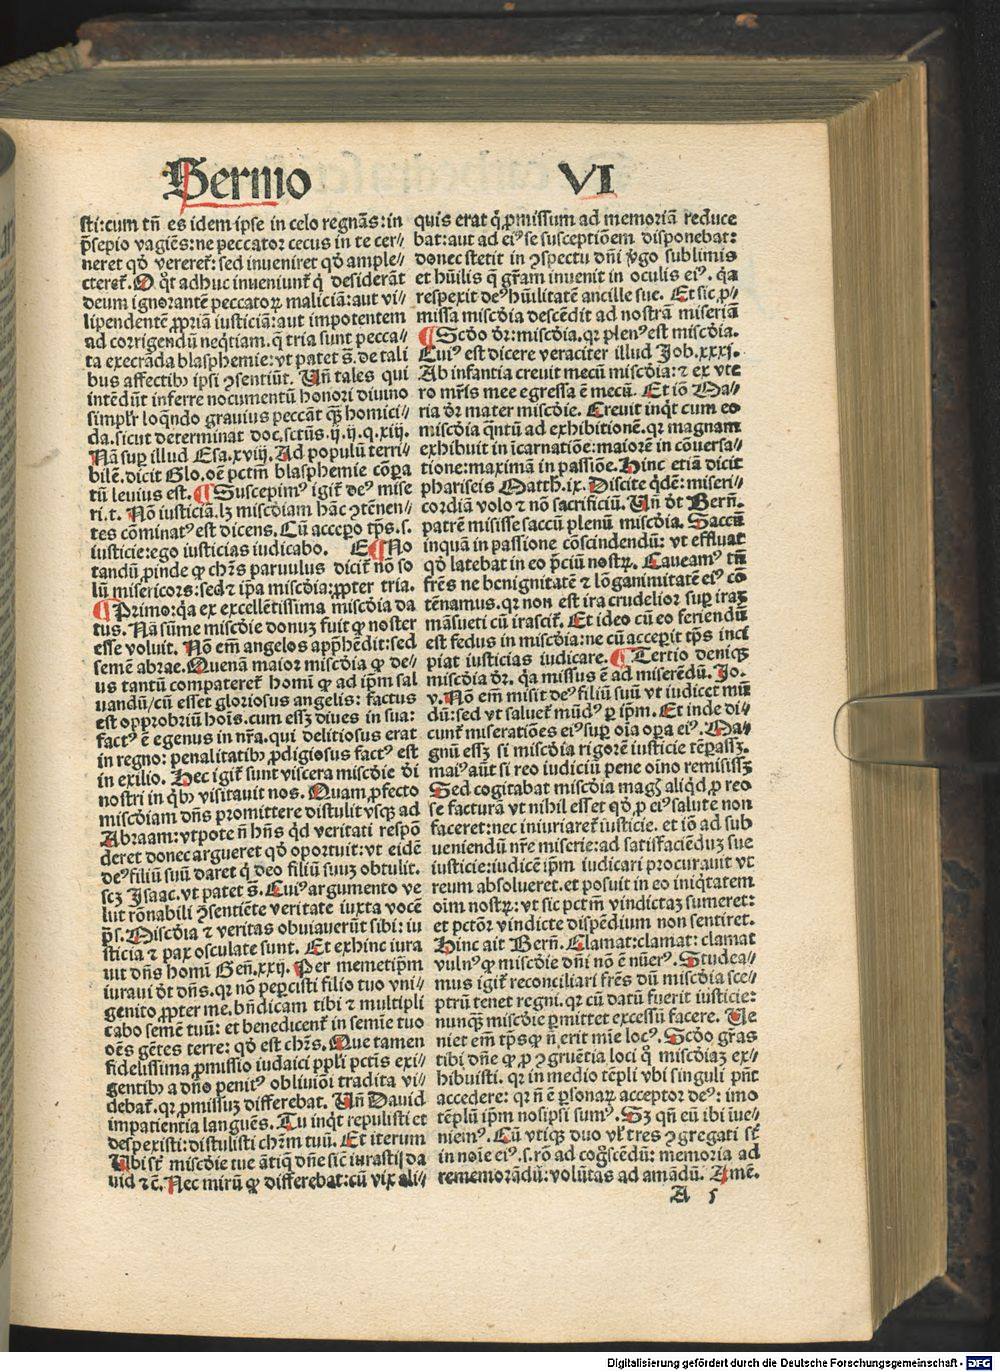 Sermo VI
sti:cum tñ es idem ipse in celo regnãs:in
p̃sepio vagiẽs:ne peccator cecus in te cer⸗
neret qd̕ vereret̃: sed inveniret qd̕ ample⸗
cteret̃. O qͦt adhuc inveniunt̃ q̇ desiderãt
deum ignorantẽ peccatoꝝ maliciã:aut vi⸗
lipendentẽ ꝓpriã iusticiã:aut impotentem
ad corrigendũ neq̃tiam. q̃ tria sunt pecca⸗
ta execrãda blasphemie: vt patet s̃. de tali
bus affectibꝰ ipsi ꝯsentiũt. Uñ tales qui
intẽdũt inferre nocumentũ honori divino
simplr̃ loq̃ndo gravius peccãt qꝫ̃ homici⸗
da. sicut determinat doc. sctũs. ij. ij. q. xiij.
Nã suꝑ illud Esa. xviij. Ad populũ terri⸗
bilẽ. dicit Glo. oẽ pctm̃ blasphemie cõꝑa
tũ levius est. ¶ Suscepimꝰ igit̃ deꝰ mise
ri. t. Nõ iusticiã. lꝫ miscd̕iam hãc ꝯtẽnen⸗
tes cõminatꝰ est dicens. Cũ accepo tp̃s. s.
iusticie:ego iusticias iudicabo. E ¶ No
tandũ ꝓinde ꝙ chr̃s parvulus dicit̃ nõ so
lũ misericors: sed ⁊ ip̃a miscd̕ia: ꝓpter tria.
¶ Primo: q̇a ex excellẽtissima miscd̕ia da
tus. Nã sũme miscd̕ie donuꝫ fuit ꝙ noster
esse voluit. Nõ em̃ angelos app̃hẽdit: sed
semẽ abrae. Quenã maior miscd̕ia ꝙ de⸗
us tantũ compateret̃ homĩ ꝙ ad ip̃m sal
uandũ/cũ esset gloriosus angelis: factus
est opprobriũ hoĩs. cum esꝫ dives in sua:
factꝰ ẽ egenus in nr̃a. qui delitiosus erat
in regno: penalitatibꝰ ꝓdigiosus factꝰ est
in exilio. Hec igit̃ sunt viscera miscd̕ie di
nostri in qͥbꝰ visitavit nos. Quam ꝓfecto
miscd̕iam dñs promittere distulit vsqꝫ ad
Abraam: vtpote ñ hñs qͥd veritati respõ
deret donec argueret qd̕ oportuit: vt eidẽ
deꝰ filiũ suũ daret q̇ deo filiũ suuꝫ obtulit.
scꝫ Isaac. vt patet s̃. Cuiꝰ argumento ve
lut rõnabili ꝯsentiẽte veritate iuxta vocẽ
p̃s. Miscd̕ia ⁊ veritas obviaverũt sibi: iu
sticia ⁊ pax osculate sunt. Et exhinc iura
vit dñs homĩ Geñ. xxij. Per memetip̃m
iuravi dt̕ dñs. qr nõ peꝑcisti filio tuo vni⸗
genito ꝓpter me. bñdicam tibi ⁊ multipli
cabo semẽ tuũ: et benedicent̃ in semie tuo
oẽs gẽtes terre: qd̕ est chr̃s. Que tamen
fidelissima ꝓmissio iudaici ppl̕i pctis exi⸗
gentibꝰ a dñõ penitꝰ obliviõi tradita vi⸗
debat̃. qr ꝓmissuꝫ differebat. Uñ David
impatientia languẽs. Tu inqͥt repulisti et
despexisti: distulisti chr̃m tuũ. Et iterum
Ubi st̃ miscd̕ie tue ãtiq̃ dñe sic̃ iurasti da
vid ⁊c̃. Nec mirũ ꝙ differebat: cũ vix ali⸗
quis erat q̇ ꝓmissum ad memoriã reduce
bat: aut ad eiꝰ se susceptiõem disponebat:
donec stetit in ꝯspectu dñi vg̕o sublimis
et hũilis q̃ gr̃am invenit in oculis eiꝰ. q̇a
respexit deꝰ hũilitatẽ ancille sue. Et sic ꝓ⸗
missa miscd̕ia descẽdit ad nostrã miseriã
¶ Scd̕o dr̕: miscd̕ia. qr plenꝰ est miscd̕ia.
Cuiꝰ est dicere veraciter illud Job. xxxj.
Ab infantia crevit mecũ miscd̕ia: ⁊ ex vte
ro mr̃is mee egressa ẽ mecũ. Et iõ Ma⸗
ria dr̕ mater miscd̕ie. Crevit inqͥt cum eo
miscd̕ia qͣntũ ad exhibitionẽ. qr magnam
exhibuit in ĩcarnatiõe: maiorẽ in cõversa⸗
tione: maximã in passiõe. Hinc etiã dicit
phariseis Matth. ix. Discite qd̃ẽ: miseri⸗
cordiã volo ⁊ nõ sacrificiũ. Uñ dt̕ Berñ.
patrẽ misisse saccũ plenũ miscd̕ia. Saccũ
inquã in passione cõscindendũ: vt effluat
qd̕ latebat in eo p̃ciũ nostꝝ. Caveamꝰ tñ
fr̃es ne benignitatẽ ⁊ lõganimitatẽ eiꝰ cõ
tẽnamus. qr non est ira crudelior suꝑ iraꝫ
mãsueti cũ irascit̃. Et ideo cũ eo feriendũ
est fedus in miscd̕ia: ne cũ acceꝑit tp̃s incĩ
piat iusticias iudicare. ¶ Tertio deniqꝫ
miscd̕ia dr̕. q̇a missus ẽ ad miserẽdũ. Jo.
v. Nõ em̃ misit deꝰ filiũ suũ vt iudicet mũ
dũ: sed vt salvet̃ mũdꝰ ꝑ ip̃m. Et inde di⸗
cunt̃ miseratiões eiꝰ suꝑ oĩa oꝑa eiꝰ. Ma⸗
gnũ esꝫ si miscd̕ia rigorẽ iusticie tẽꝑasꝫ.
maiꝰ aũt si reo iudiciũ pene oĩno remisisꝫ
Sed cogitabat miscd̕ia magꝭ aliqͥd ꝓ reo
se facturã vt nihil esset qd̕ ꝓ eiꝰ salute non
faceret: nec iniuriaret̃ iusticie. et iõ ad sub
veniendũ nr̃e miserie: ad satisfaciẽduꝫ sue
iusticie: iudicẽ ip̃m iudicari procuravit vt
reum absolveret. et posuit in eo iniqͥtatem
oĩm nostꝝ: vt sic pctm̃ vindictaꝫ sumeret:
et pctõr vindicte dispẽdium non sentiret.
Hinc ait Berñ. Clamat: clamat: clamat
vulnꝰ ꝙ miscd̕ie dñi nõ ẽ nũerꝰ. Studea⸗
mus igit̃ reconciliari fr̃es dũ miscd̕ia sce⸗
ptrũ tenet regni. qr cũ datũ fuerit iusticie:
nunqꝫ̃ miscd̕ie ꝑmittet excessũ facere. Ue
niet em̃ tp̃s qñ ñ erit mĩe locꝰ. Scd̕o gr̃as
tibi dñe ꝙ ꝓ ꝯgruẽtia loci qͦ miscd̕iaꝫ ex⸗
hibuisti. qr in medio tẽpli vbi singuli pñt
accedere: qr ñ ẽ ꝑsonaꝝ acceptor deꝰ: imo
tẽplũ ip̃m nosipsi sumꝰ. Sꝫ qñ eũ ibi ĩue⸗
niemꝰ. Cũ vtiqꝫ duo vl̕ tres ꝯgregati st̃
in noĩe eiꝰ. s. rõ ad cog̃scẽdũ: memoria ad
rememorãdũ: volũtas ad amãdũ. Amẽ.
A 5
Digitalisierung gefördert durch die Deutsche Forschungsgemeinschaft - DFG